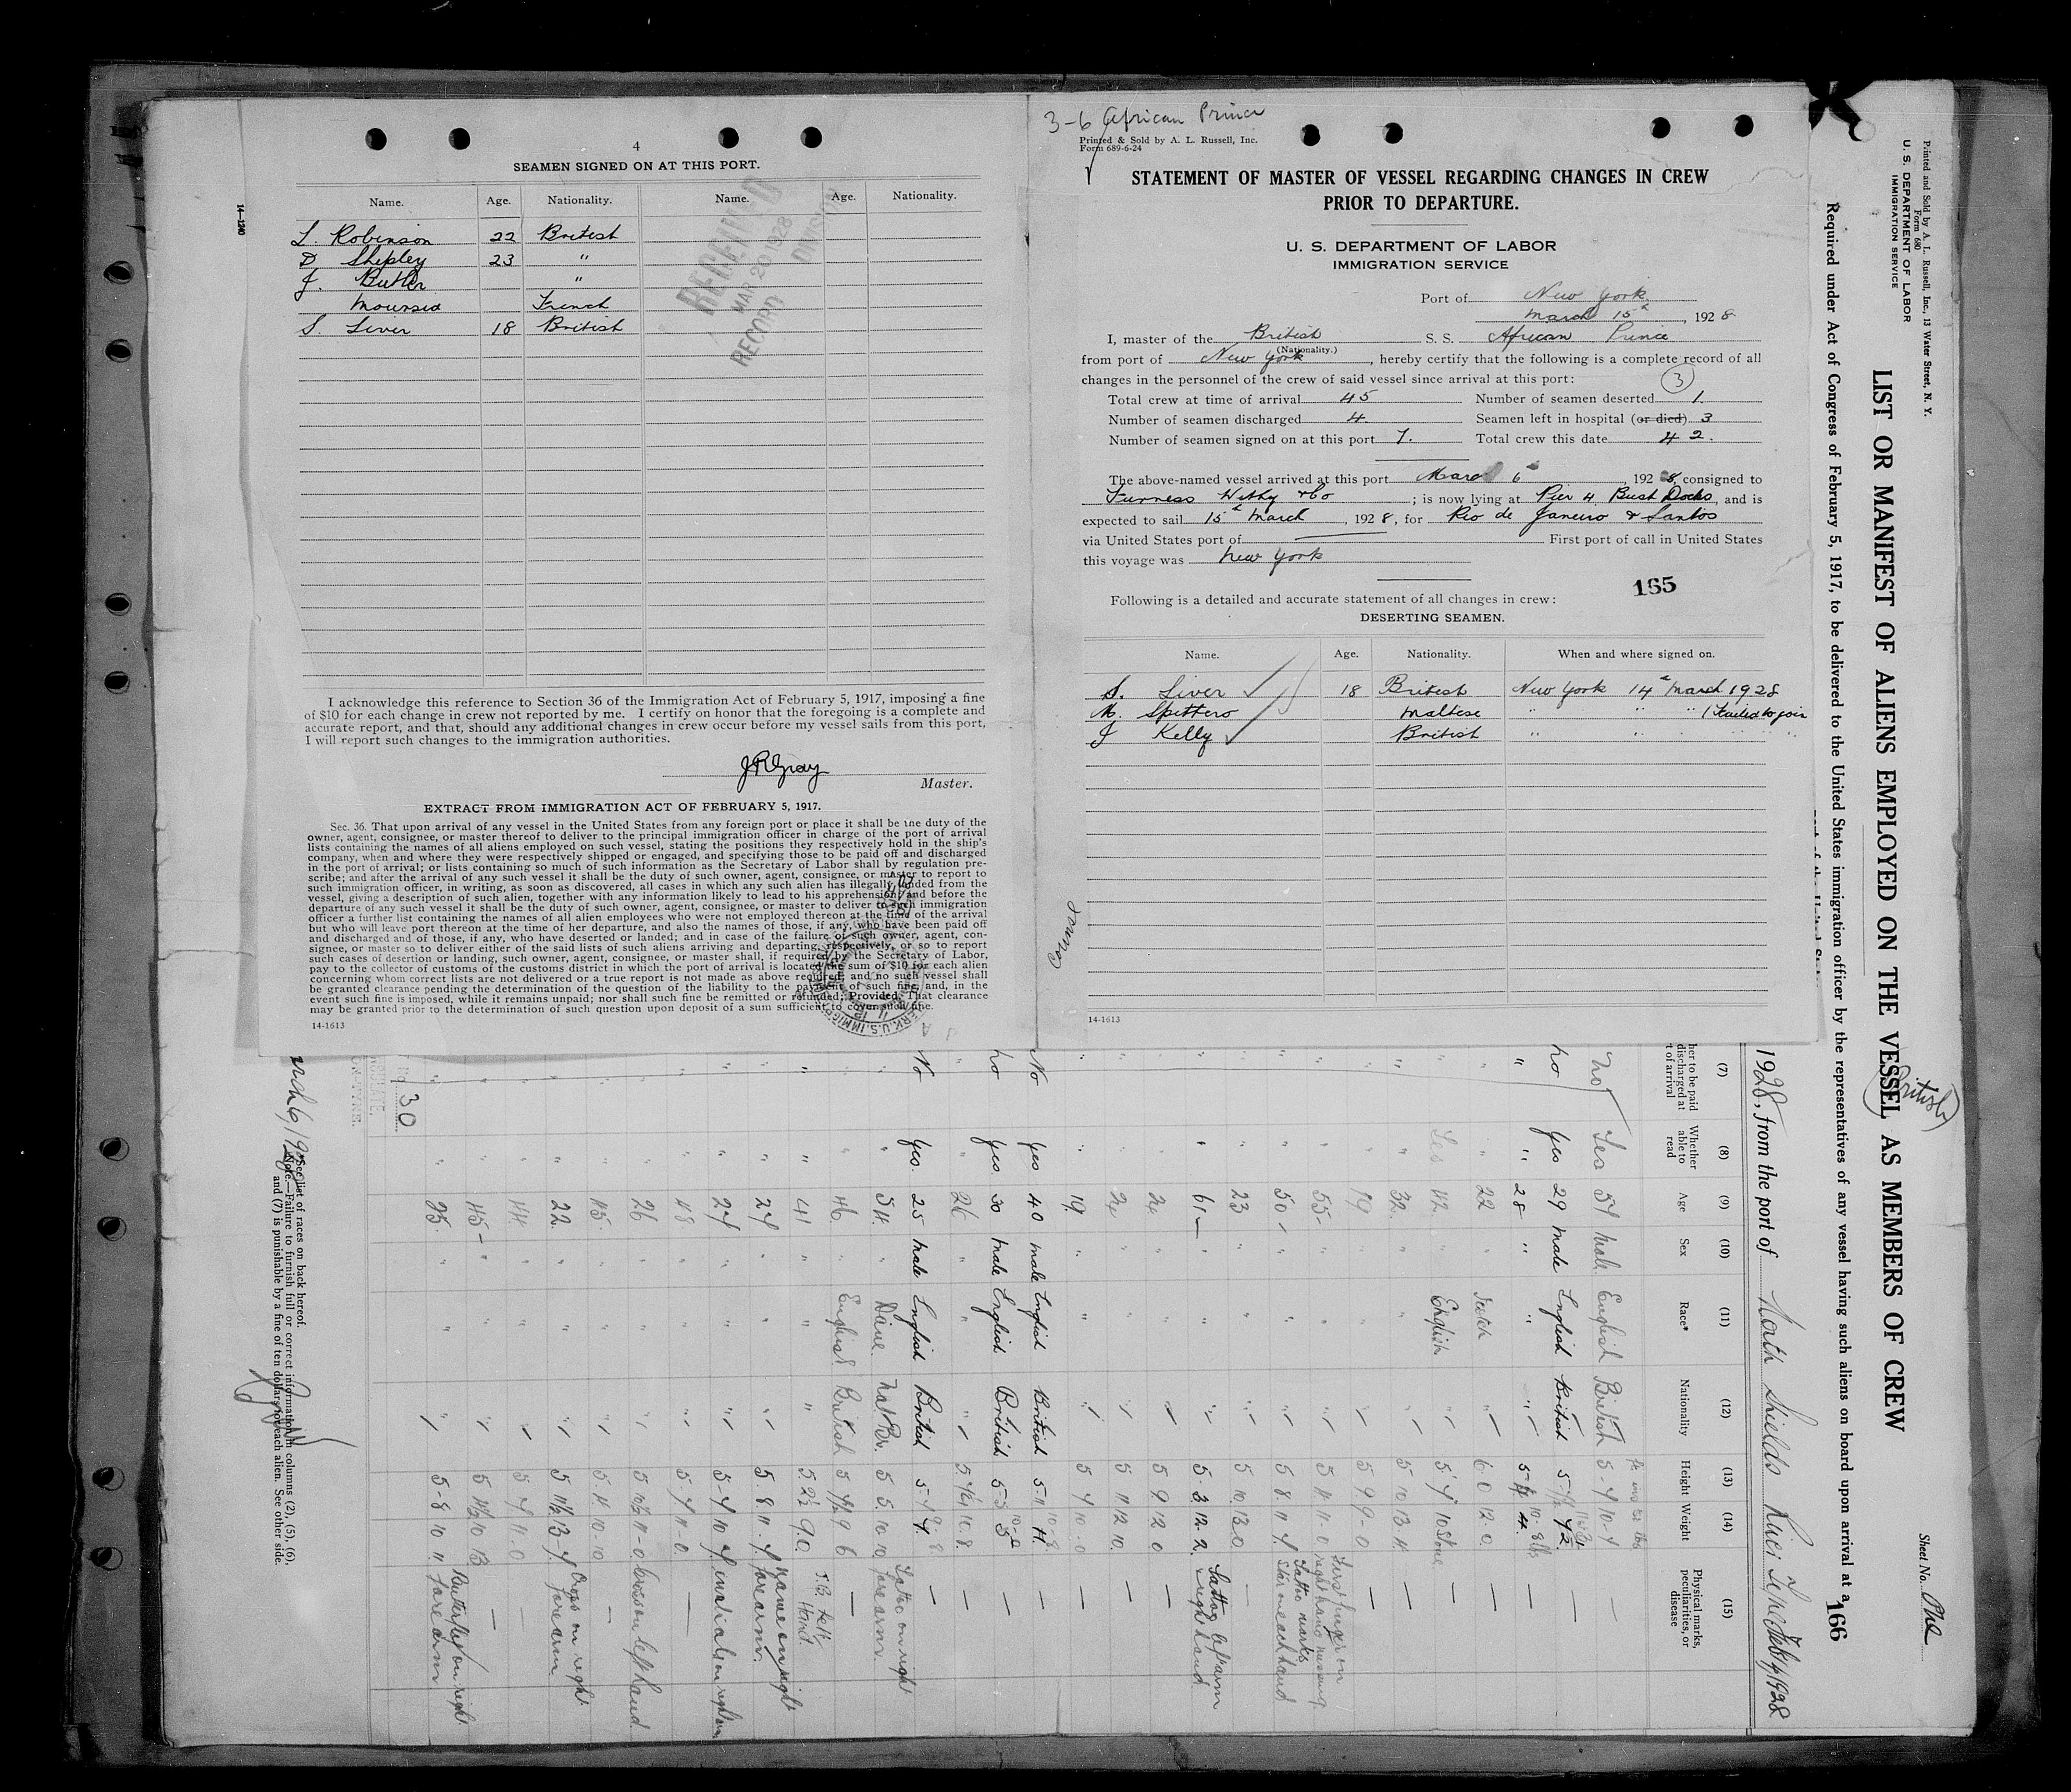 4
SEAMEN SIGNED ON AT THIS PORT.
Name. Age. Nationality. Name. Age. Nationality.
L. Robinson 22 British
D Shepley 23 "
J. Butler "
French
S. Liver 18 British
RECEIVED
MAR 20 1928
RECORD DIVISION
14-1240
I acknowledge this reference to Section 36 of the Immigration Act of February 5, 1917, imposing a fine
of $10 for each change in crew not reported by me. I certify on honor that the foregoing is a complete and
accurate report, and that, should any additional changes in crew occur before my vessel sails from this port,
I will report such changes to the immigration authorities.
J R Gray
Master.
EXTRACT FROM IMMIGRATION ACT OF FEBRUARY 5, 1917.
Sec. 36. That upon arrival of any vessel in the United States from any foreign port or place it shall be the duty of the
owner, agent, consignee, or master thereof to deliver to the principal immigration officer in charge of the port of arrival
lists containing the names of all aliens employed on such vessel, stating the positions they respectively hold in the ship's
company, when and where they were respectively shipped or engaged, and specifying those to be paid off and discharged
in the port of arrival; or lists containing so much of such information as the Secretary of Labor shall by regulation pre-
scribe; and after the arrival of any such vessel it shall be the duty of such owner, agent, consignee, or master to report to
such immigration officer, in writing, as soon as discovered, all cases in which any such alien has illegally landed from the
vessel, giving a description of such alien, together with any information likely to lead to his apprehension; and before the
departure of any such vessel it shall be the duty of such owner, agent, consignee, or master to deliver to such immigration
officer a further list containing the names of all alien employees who were not employed thereon at the time of the arrival
but who will leave port thereon at the time of her departure, and also the names of those, if any, who have been paid off
and discharged and of those, if any, who have deserted or landed; and in case of the failure of such owner, agent, con-
signee, or master so to deliver either of the said lists of such aliens arriving and departing, respectively, or so to report
such cases of desertion or landing, such owner, agent, consignee, or master shall, if required by the Secretary of Labor,
pay to the collector of customs of the customs district in which the port of arrival is located the sum of $10 for each alien
concerning whom correct lists are not delivered or a true report is not made as above required; and no such vessel shall
be granted clearance pending the determination of the question of the liability to the payment of such fine, and, in the
event such fine is imposed, while it remains unpaid; nor shall such fine be remitted or refunded: Provided, That clearance
may be granted prior to the determination of such question upon deposit of a sum sufficient to cover such fine.
14-1613
3-6 African Prince
Printed & Sold by A. L. Russell, Inc.
Form 689-6-24
STATEMENT OF MASTER OF VESSEL REGARDING CHANGES IN CREW
PRIOR TO DEPARTURE.
U. S. DEPARTMENT OF LABOR
IMMIGRATION SERVICE
Port of New York
March 15th, 1928
I, master of the British S. S. African Prince
(Nationality.)
from port of New York, hereby certify that the following is a complete record of all
changes in the personnel of the crew of said vessel since arrival at this port:
3
Total crew at time of arrival 45 Number of seamen deserted 1.
Number of seamen discharged 4. Seamen left in hospital (or died) 3
Number of seamen signed on at this port 7. Total crew this date 42.
The above-named vessel arrived at this port March 6th, 1928, consigned to
Furness Withy & Co; is now lying at Pier 4 Bush Docks, and is
expected to sail 15th March, 1928, for Rio de Janeiro & Santos
via United States port of First port of call in United States
this voyage was New York
165
Following is a detailed and accurate statement of all changes in crew:
DESERTING SEAMEN.
Name. Age. Nationality. When and where signed on.
S. Liver 18 British New York 14th March 1928
M. Spittero Maltese " " " Failed to join
J Kelly British " " " "
14-1613
Printed and Sold by A. L. Russell, Inc., 13 Water Street, N. Y.
Form 680
U. S. DEPARTMENT OF LABOR
IMMIGRATION SERVICE
Sheet No. One
LIST OR MANIFEST OF ALIENS EMPLOYED ON THE VESSEL AS MEMBERS OF CREW
(British)
Required under Act of Congress of February 5, 1917, to be delivered to the United States immigration officer by the representatives of any vessel having such aliens on board upon arrival at a
166
1928, from the port of North Shields
(7) (8) (9) (10) (11) (12) (13) (14) (15)
her to be paid discharged at t of arrival Whether able to read Age Sex Race* Nationality Height Weight Physical marks, peculiarities, or disease
No Yes 57 Male English British 5-7 10-7 —
no yes 29 male English British —
" " 28 " " " —
" " 22 " Scotch " 6 0 12.0 —
" Yes 42 " English " 5'7" 10 stone —
" " 32 " " " 5 10 —
" " 19 " " " 5 9 9-0 —
" " 55 " " " 5 11 11-0 First finger on right hand missing
" " 50 " " " 5 8 11 7 Tattoo marks Star on each hand
" " 23 " " " 5 10 13.0 —
" " 61 " " " 5.3 12.2 Tattoo left arm & right hand
" " 24 " " " 5 9 12 0 —
" " 24 " " " 5 11 12 10 —
" " 19 " " " 5 7 10-0 —
No yes 40 male English British 5-11 —
no yes 30 male English British 5-5 —
" " 26 " " " 10.8 —
No yes. 25 male English British 5-7 —
" " 54 " Dane. Nat Br. 5 5 10 10 Tattoo on right forearm.
" " 46 " English British 9 6 —
" " 41 " " " 5 2½ 9.0 T.B. left Hand
" " 27 " " " 5.8 11.7 name on right forearm.
" " 27 " " " 5-7 10 initials on right arm
" " 48 " " " 5.7 11-0 —
" " 26 " " " 11-0 cross on left hand
" " 45 " " " 5.11 10-10 —
" " 22 " " " 5 11½ 13-7 Cross on right forearm
" " 44 " " " 5 7 11-0 —
" " 45 " " " 10 13 —
" " 25 " " " 5-8 10 11 Butterfly on right forearm
No 30
*See list of races on back hereof.
Note.—Failure to furnish full or correct information in columns (2), (5), (6),
and (7) is punishable by a fine of ten dollars for each alien. See other side.